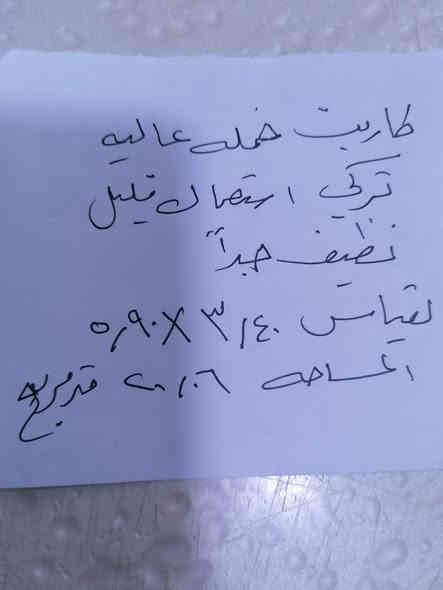 كاربت خمله عاليه
تركي استعمال قليل
نظيف جداً
لقياس ٣,٤٠ X ٥,٩٠
المساحه ٢٠,٠٦ متر مربع